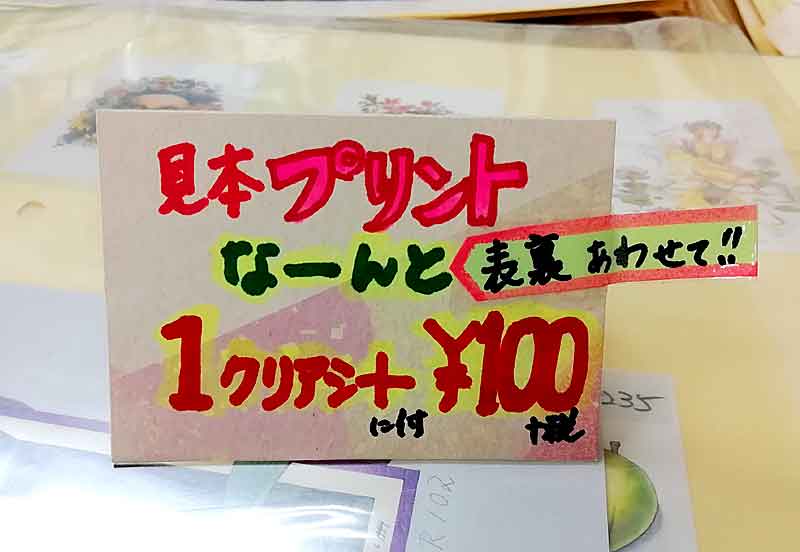 見本プリント
なーんと 表裏あわせて!!
1クリアシート ¥100
に付 +税
235
R102